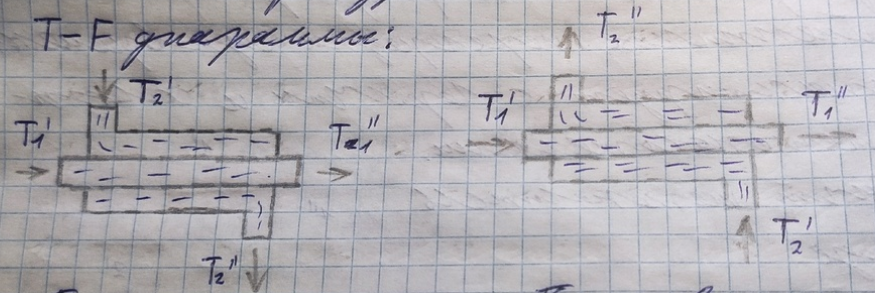 T-F диаграммы:
T₂'
T₁' T₁''
T₂''
T₂''
T₁' T₁''
T₂'